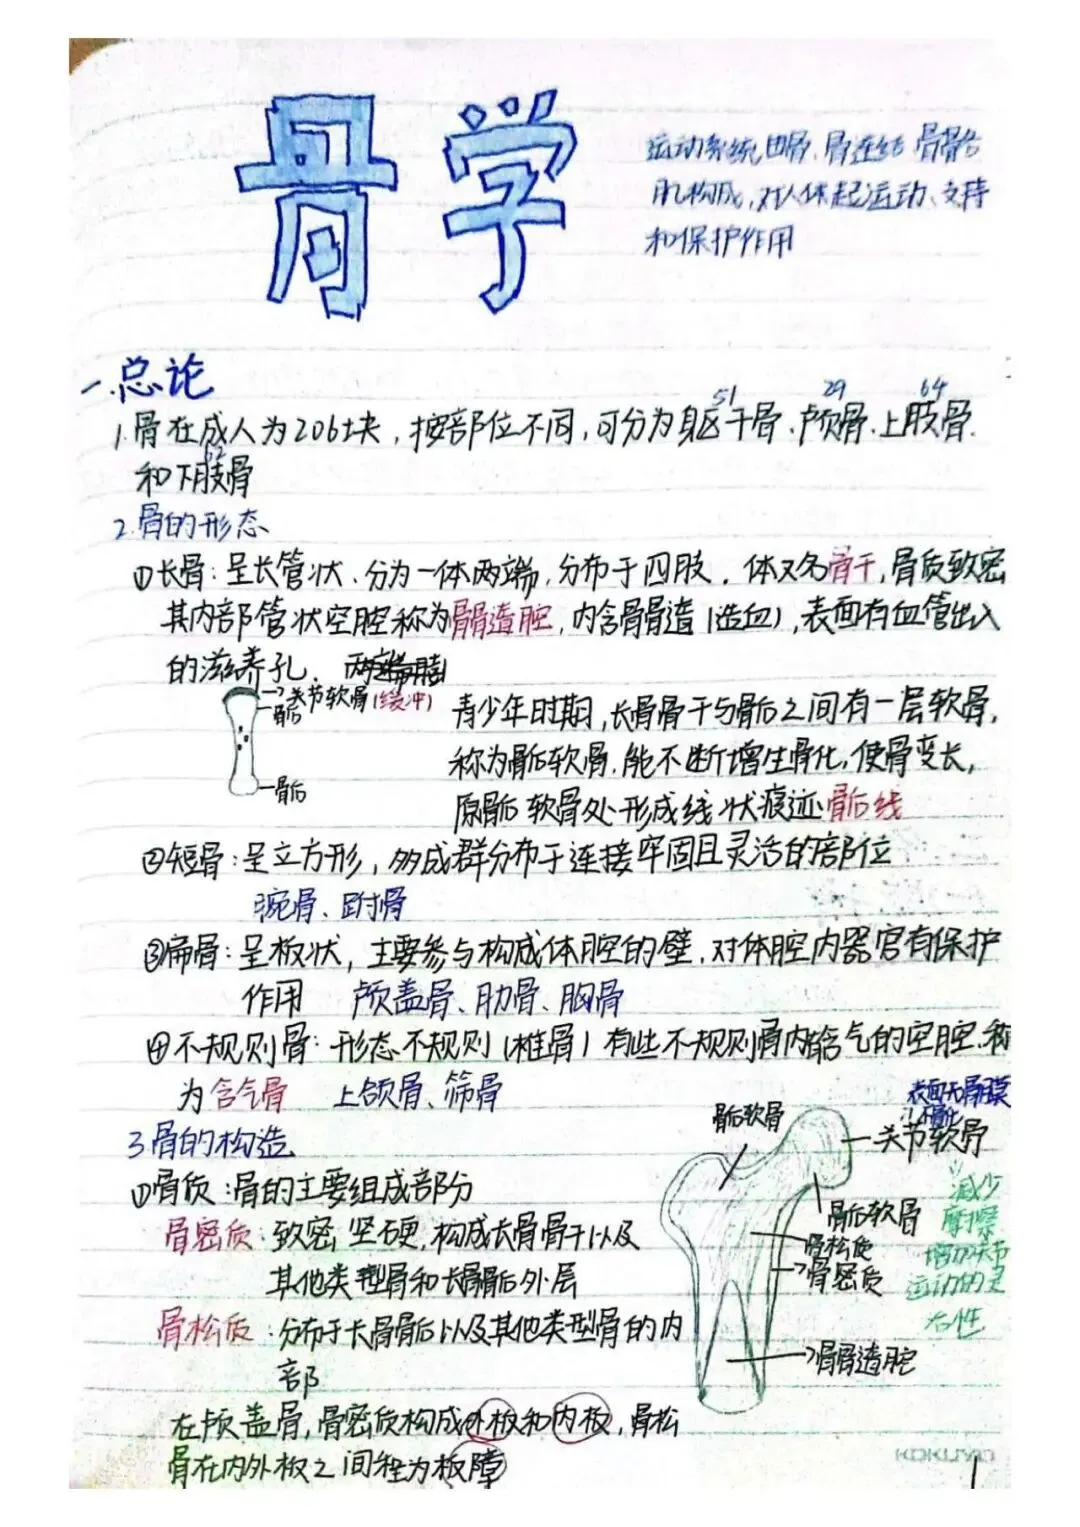 骨学
运动系统由骨、骨连结、骨骼
肌构成，对人体起运动、支持
和保护作用
一.总论
51 29 64
1.骨在成人为206块，按部位不同，可分为躯干骨、颅骨、上肢骨.
62
和下肢骨
2.骨的形态
①长骨：呈长管状、分为一体两端，分布于四肢．体又名骨干，骨质致密
其内部管状空腔称为骨髓腔，内含骨髓（造血），表面有血管出入
的滋养孔．
→关节软骨（缓冲）
骨骺
骨骺
青少年时期，长骨骨干与骨骺之间有一层软骨，
称为骺软骨．能不断增生骨化，使骨变长，
原骺软骨处形成线状痕迹骺线
②短骨：呈立方形，多成群分布于连接牢固且灵活的部位
腕骨、跗骨
③扁骨：呈板状，主要参与构成体腔的壁，对体腔内器官有保护
作用 颅盖骨、肋骨、胸骨
④不规则骨：形态不规则（椎骨）有些不规则骨内含气的空腔．称
为含气骨 上颌骨、筛骨
3 骨的构造
①骨质：骨的主要组成部分
骨密质：致密坚硬，构成长骨骨干以及
其他类型骨和长骨骺外层
骨松质：分布于长骨骺以及其他类型骨的内
部
在颅盖骨，骨密质构成外板和内板，骨松
骨在内外板之间称为板障
骺软骨
表面无骨膜
关节软骨
减少
摩擦
增加关节
运动的灵
活性
骺软骨
骨松质
→骨密质
→骨髓腔
KOKUYO